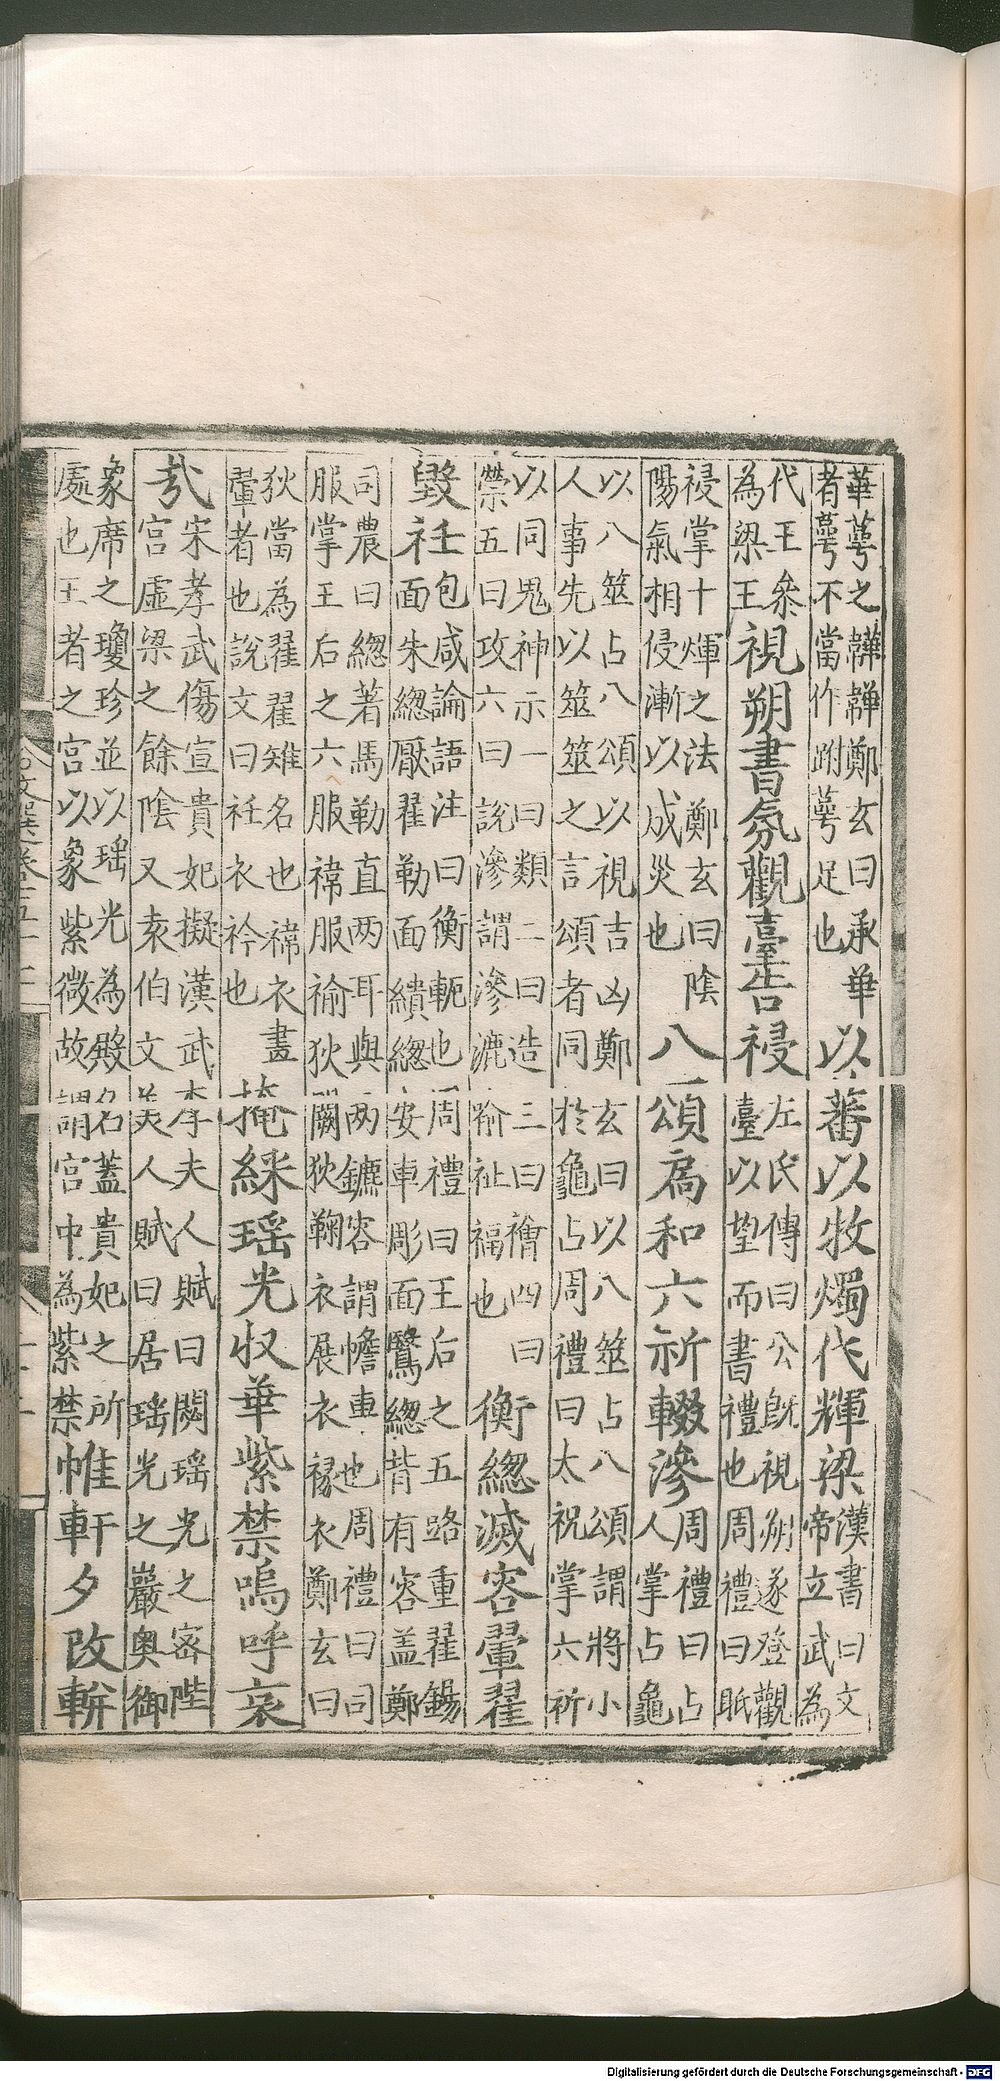 華萼之韡韡鄭玄曰承華
者萼不當作跗萼足也
以蕃以牧燭代輝梁
漢書曰文
帝立武為
代王叅
為梁王
視朔書氛觀臺告祲
左氏傳曰公旣視朔遂登觀
臺以望而書禮也周禮曰眂
祲掌十煇之法鄭玄曰陰
陽氣相侵漸以成災也
八頌扃和六祈輟滲
周禮曰占
人掌占龜
以八筮占八頌以視吉凶鄭玄曰以八筮占八頌謂將小
人事先以筮筮之言頌者同於龜占周禮曰太祝掌六祈
以同鬼神示一曰類二曰造三曰禬四曰
禜五曰攻六曰說滲謂滲漉祉福也
衡總滅容翬翟
毀衽
包咸論語注曰衡軛也周禮曰王后之五路重翟錫
面朱總厭翟勒面繢總安車彫面鷖總皆有容盖鄭
司農曰總著馬勒直两耳與两鑣容謂幨車也周禮曰司
服掌王后之六服褘服揄狄闕狄鞠衣展衣褖衣鄭玄曰
狄當為翟翟雉名也褘衣畫
翬者也說文曰衽衣衿也
掩綵瑶光收華紫禁嗚呼哀
㢤
宋孝武傷宣貴妃擬漢武李夫人賦曰閟瑶光之密陛
宮虛梁之餘陰又袁伯文美人賦曰居瑶光之巖奥御
象席之瓊珍並以瑶光為殿名蓋貴妃之所
處也王者之宮以象紫微故謂宮中為紫禁
帷軒夕改輧
Digitalisierung gefördert durch die Deutsche Forschungsgemeinschaft - DFG